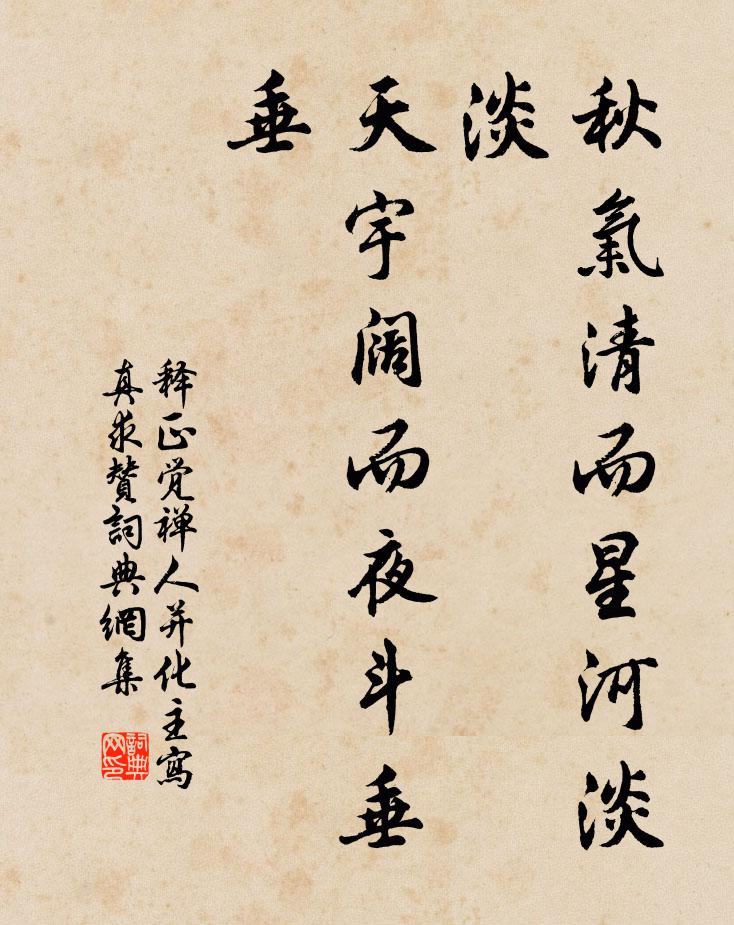 秋氣清而星河淡
淡
天宇闊而夜斗垂
垂
释正觉禅人并化主寫
真求贊詞典網集
詞典
网印